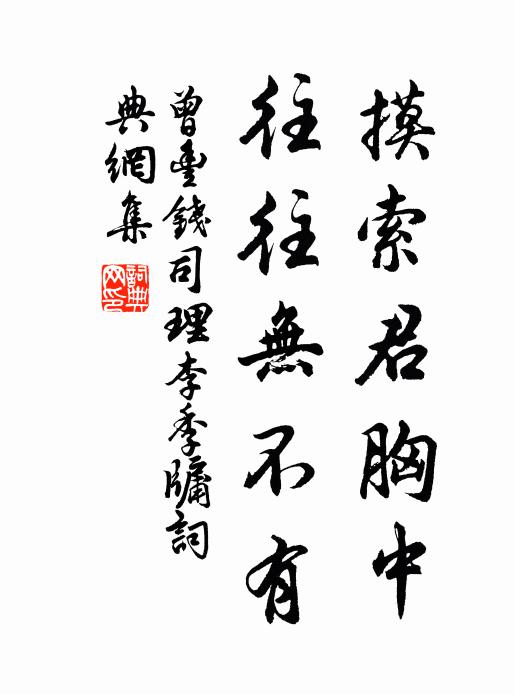 摸索君胸中
往往無不有
曾豐錢司理李季牖詞
典網集
詞典網印